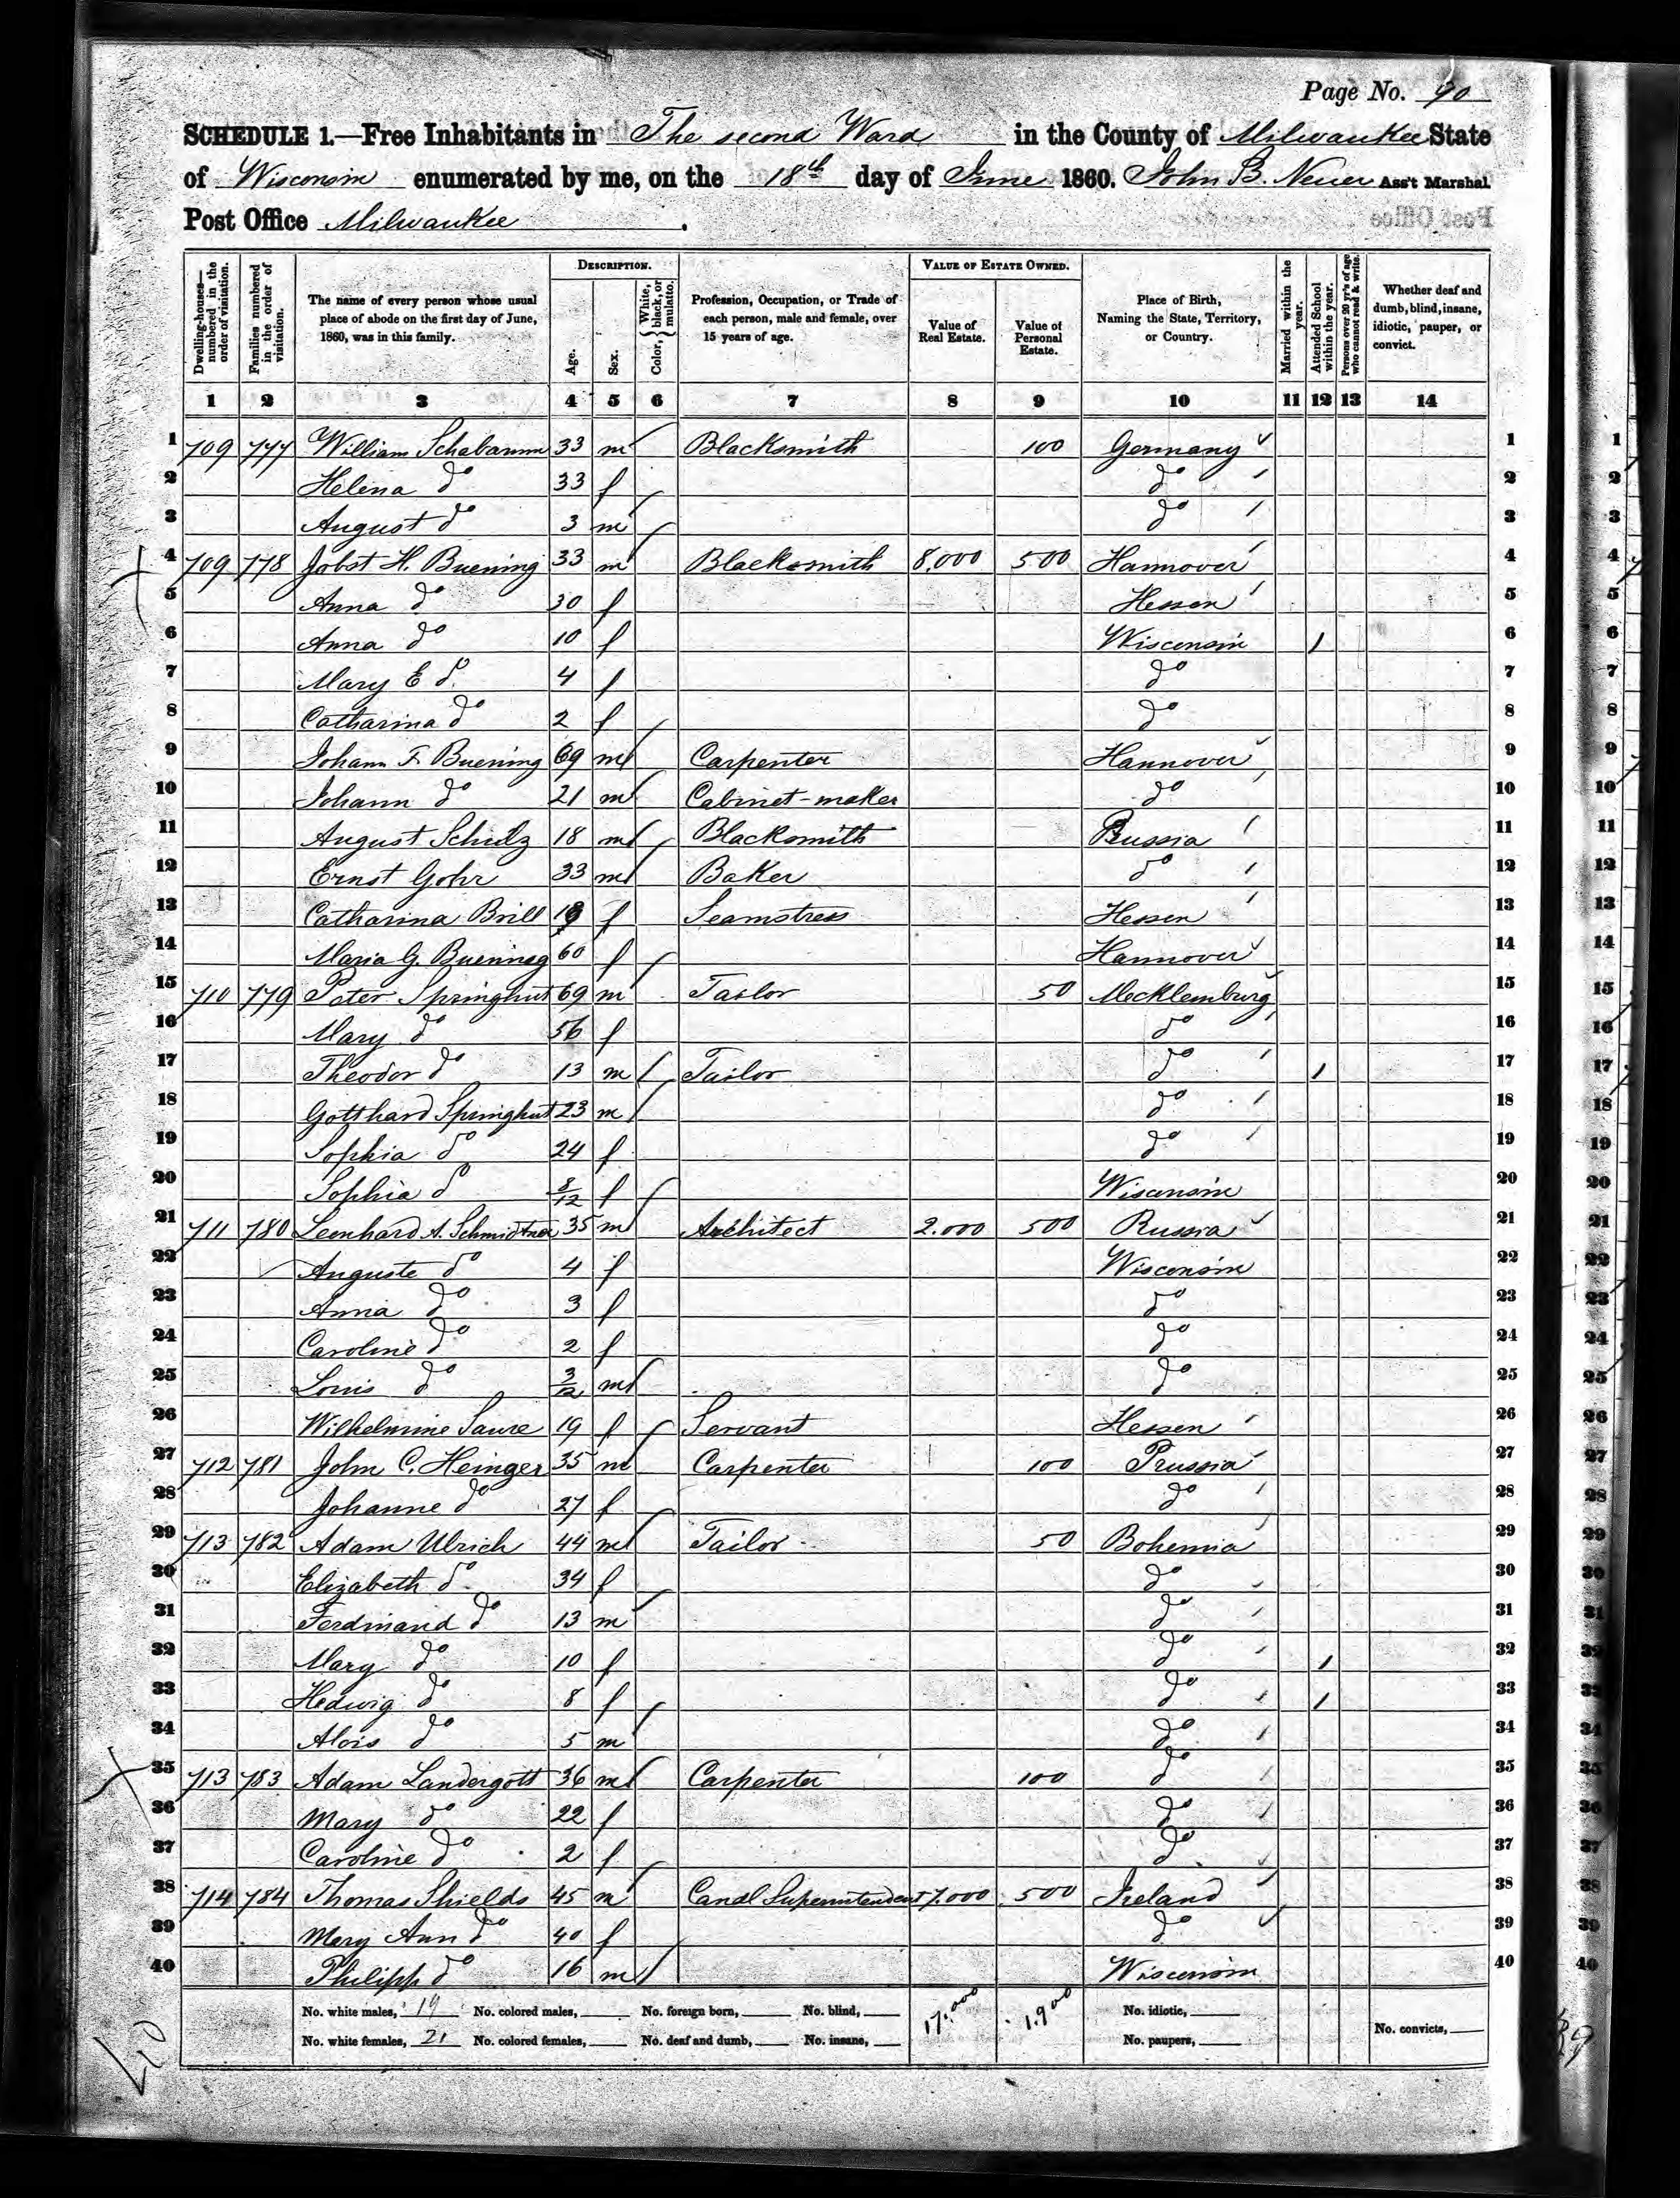 Page No. 90
SCHEDULE 1.—Free Inhabitants in The second Ward in the County of Milwaukee State
of Wisconsin enumerated by me, on the 18th day of June 1860. John B. Neuer Ass't Marshal
Post Office Milwaukee.
Dwelling-houses—numbered in the order of visitation. Families numbered in the order of visitation. The name of every person whose usual place of abode on the first day of June, 1860, was in this family. DESCRIPTION. Age. Sex. Color, { White, black, or mulatto. Profession, Occupation, or Trade of each person, male and female, over 15 years of age. VALUE OF ESTATE OWNED. Value of Real Estate. Value of Personal Estate. Place of Birth, Naming the State, Territory, or Country. Married within the year. Attended School within the year. Persons over 20 yr's of age who cannot read & write. Whether deaf and dumb, blind, insane, idiotic, pauper, or convict.
1 2 3 4 5 6 7 8 9 10 11 12 13 14
1 709 777 William Schabarum 33 m Blacksmith 100 Germany 1
2 Helena do 33 f do 2
3 August do 3 m do 3
4 709 778 Jobst H. Buening 33 m Blacksmith 8,000 500 Hannover 4
5 Anna do 30 f Hessen 5
6 Anna do 10 f Wisconsin 1 6
7 Mary E do 4 f do 7
8 Catharina do 2 f do 8
9 Johann F. Buening 69 m Carpenter Hannover 9
10 Johann do 21 m Cabinet-maker do 10
11 August Schulz 18 m Blacksmith Prussia 11
12 Ernst Gohr 33 m Baker do 12
13 Catharina Brill 19 f Seamstress Hessen 13
14 Maria G. Buening 60 f Hannover 14
15 710 779 Peter Springhut 69 m Tailor 50 Mecklemburg 15
16 Mary do 56 f do 16
17 Theodor do 13 m Tailor do 1 17
18 Gotthard Springhut 23 m do 18
19 Sophia do 24 f do 19
20 Sophia do 8/12 f Wisconsin 20
21 711 780 Leonhard A. Schmidtner 35 m Architect 2.000 500 Russia 21
22 Auguste do 4 f Wisconsin 22
23 Anna do 3 f do 23
24 Caroline do 2 f do 24
25 Louis do 3/12 m do 25
26 Wilhelmine Saure 19 f Servant Hessen 26
27 712 781 John C. Heinger 35 m Carpenter 100 Prussia 27
28 Johanne do 27 f do 28
29 713 782 Adam Ulrich 44 m Tailor 50 Bohemia 29
30 Elizabeth do 34 f do 30
31 Ferdinand do 13 m do 31
32 Mary do 10 f do 1 32
33 Hedwig do 8 f do 1 33
34 Alois do 5 m do 34
35 713 783 Adam Landergott 36 m Carpenter 100 do 35
36 Mary do 22 f do 36
37 Caroline do 2 f do 37
38 714 784 Thomas Shields 45 m Canal Superintendent 7.000 500 Ireland 38
39 Mary Ann do 40 f do 39
40 Philipp do 16 m Wisconsin 40
No. white males, 19 No. colored males, No. foreign born, No. blind, 17.000 1.900 No. idiotic,
No. white females, 21 No. colored females, No. deaf and dumb, No. insane, No. paupers, No. convicts,